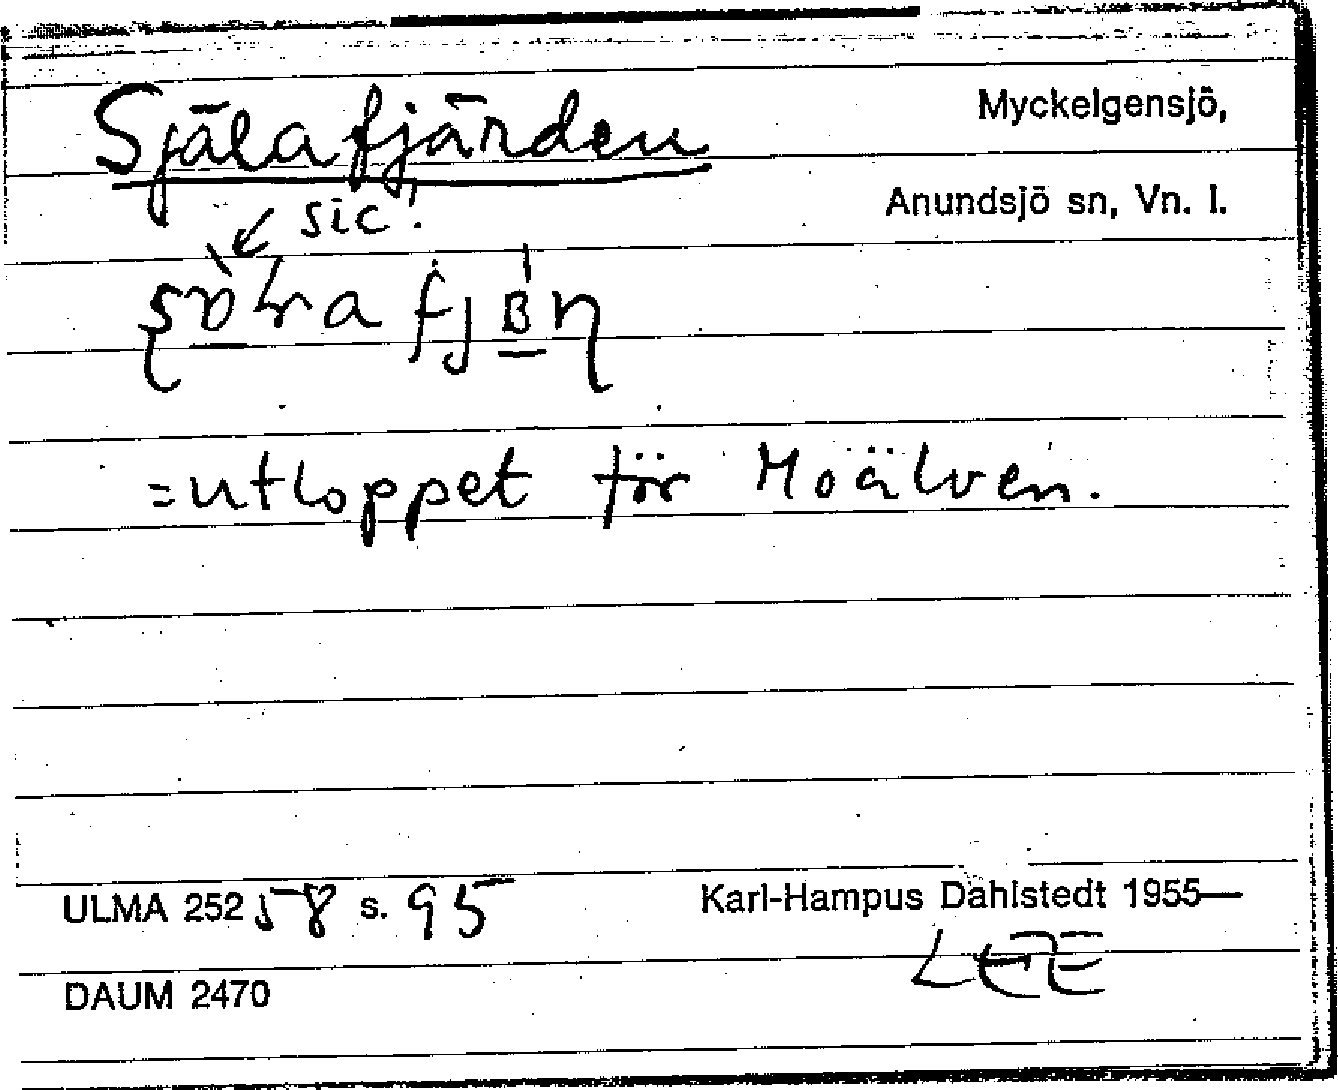 Själafjärden
Myckelgensjö,
Anundsjö sn, Vn. l.
sic!
=utloppet för Moälven.
ULMA 25258 s. 95
Karl-Hampus Dahlstedt 1955—
DAUM 2470